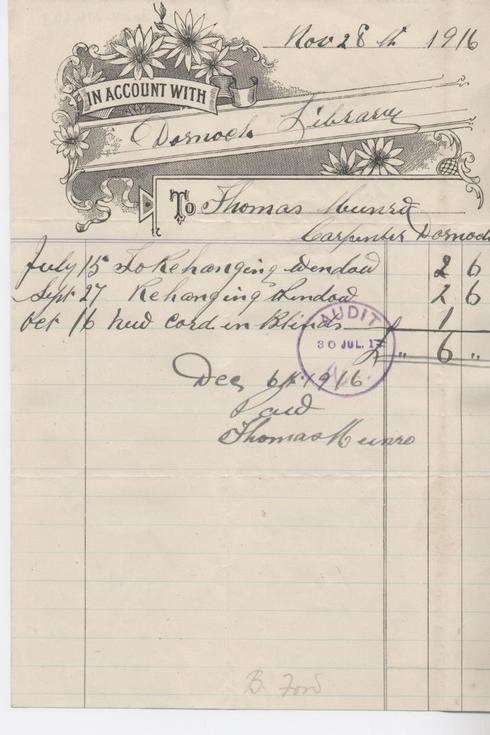 Nov 28th 1916
IN ACCOUNT WITH
Dornoch Library
To Thomas Munro
Carpenter Dornoch
July 15 To Rehanging Window 2 6
Sept 27 Rehanging Window 2 6
Oct 16 New Cord in Blinds 1
£ " 6 "
AUDIT
30 JUL. 17
Dec 6th 1916
Paid
Thomas Munro
B. Ford